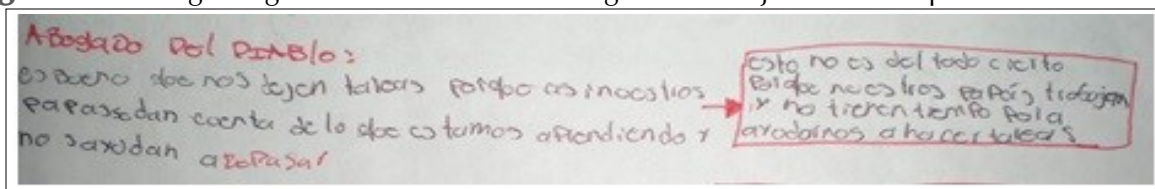 ABogaDO Del DIABlo:
es bueno que nos dejen tareas porque asi nuestros
papas se dan cuenta de lo que estamos aprendiendo y
no sayudan a repasar
esto no es del todo cierto
porque nuestros papás trabajan
y no tienen tiempo para
ayudarnos a hacer tareas